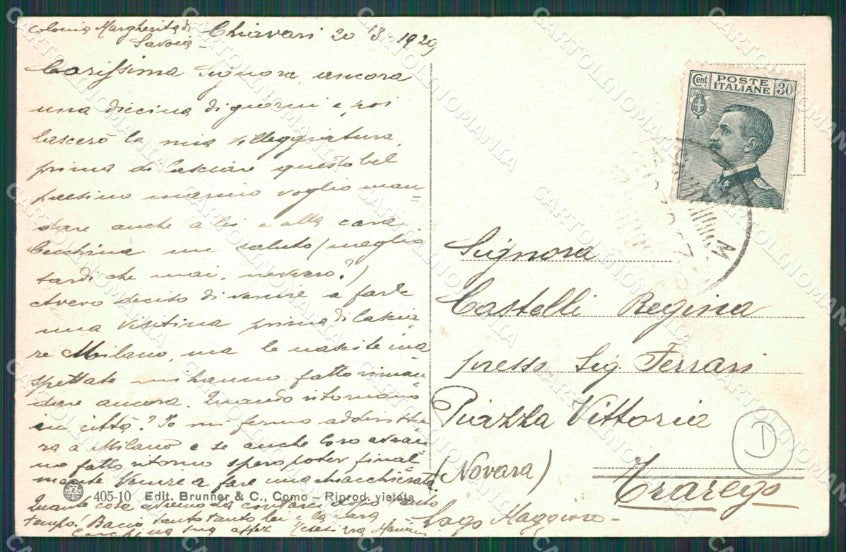 Colonia Margherita di
Savoia - Chiavari 20 3 - 1929
Carissima Signora, ancora
una diecina di giorni e, poi
lascerò la mia villeggiatura,
prima di lasciare questo bel
paesino marino voglio man-
dare anche a lei e alla cara
Cecchina un saluto (meglio
tardi che mai, nevvero?)
Avevo deciso di venire a farle
una visitina prima di lascia-
re Milano, ma le nascite ina
spettate mi hanno fatto riman-
dare ancora. Quando ritornano
in città? Io mi fermo addirittu
ra a Milano e se anche loro avran
no fatto ritorno spero poter final
mente venire a fare una chiacchierata
Quante cose avremo da contarci dopo tanto
tempo. Bacio tanto tanto lei e la cara
Cecchina sua affez
POSTE
ITALIANE
Cent. 30
Signora
Castelli Regina
presso Sig. Ferrari
Piazza Vittoria
(Novara)
Trarego
Lago Maggiore -
D
405-10 Edit. Brunner & C., Como - Riprod. vietata
CARTOLINOMANIA